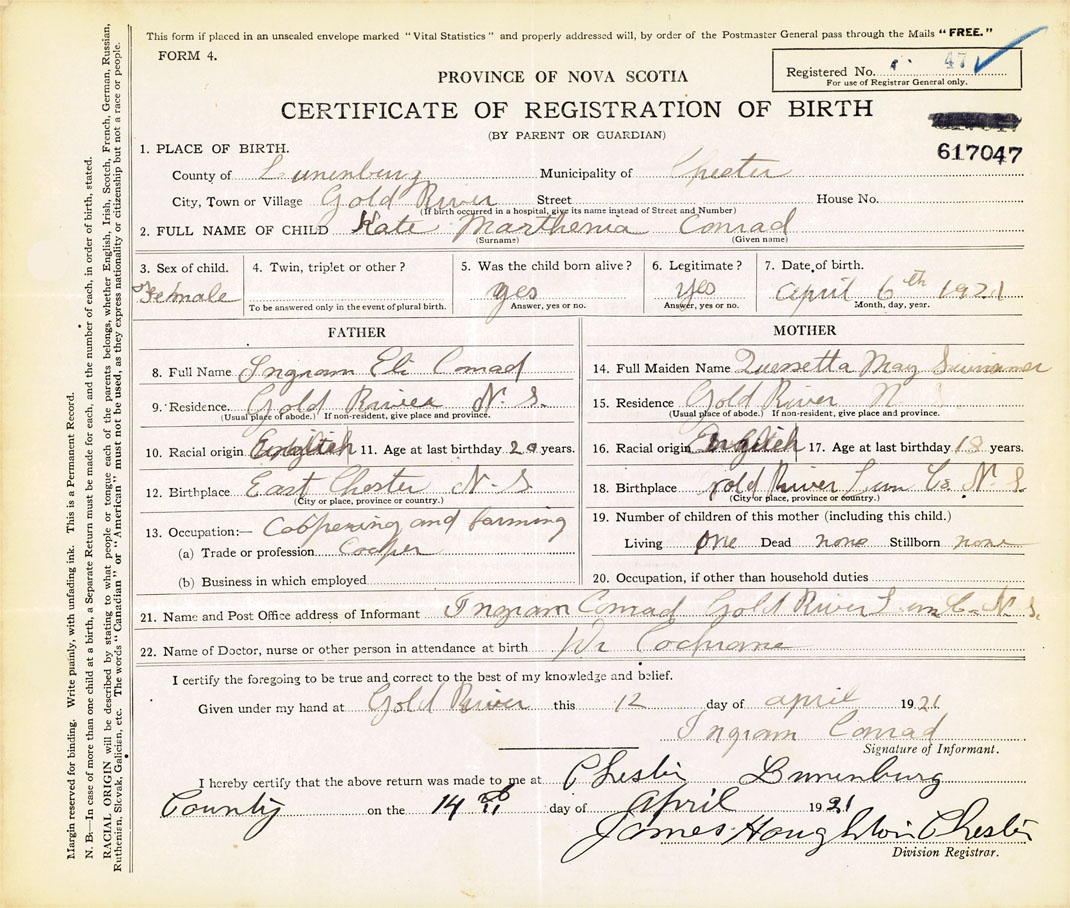 This form if placed in an unsealed envelope marked "Vital Statistics" and properly addressed will, by order of the Postmaster General pass through the Mails "FREE."
FORM 4.
Registered No. 47
For use of Registrar General only.
PROVINCE OF NOVA SCOTIA
CERTIFICATE OF REGISTRATION OF BIRTH
(BY PARENT OR GUARDIAN)
617047
1. PLACE OF BIRTH.
County of Lunenburg Municipality of Chester
City, Town or Village Gold River Street House No.
(If birth occurred in a hospital, give its name instead of Street and Number)
2. FULL NAME OF CHILD Kate Marthenia Conrad
(Surname) (Given name)
3. Sex of child. Female
4. Twin, triplet or other?
To be answered only in the event of plural birth.
5. Was the child born alive? yes
Answer, yes or no.
6. Legitimate? Yes
Answer, yes or no.
7. Date of birth. April 6th 1921
Month, day, year.
FATHER
8. Full Name Ingram Eli Conrad
9. Residence. Gold River N. S.
(Usual place of abode.) If non-resident, give place and province.
10. Racial origin English 11. Age at last birthday 20 years.
12. Birthplace East Chester N. S
(City or place, province or country.)
13. Occupation:— Coopering and farming
(a) Trade or profession Cooper
(b) Business in which employed
MOTHER
14. Full Maiden Name May
15. Residence Gold River N S
(Usual place of abode.) If non-resident, give place and province.
16. Racial origin English 17. Age at last birthday 18 years.
18. Birthplace Gold River Lun Co. N. S
(City or place, province or country.)
19. Number of children of this mother (including this child.)
Living one Dead none Stillborn none
20. Occupation, if other than household duties
21. Name and Post Office address of Informant Ingram Conrad Gold River Lun Co. N. S.
22. Name of Doctor, nurse or other person in attendance at birth Dr Cochrane
I certify the foregoing to be true and correct to the best of my knowledge and belief.
Given under my hand at Gold River this 12 day of april 1921
Ingram Conrad
Signature of Informant.
I hereby certify that the above return was made to me at Chester Lunenburg
County on the 14th day of April 1921
James Houghton Chester
Division Registrar.
Margin reserved for binding. Write plainly, with unfading ink. This is a Permanent Record.
N. B.—In case of more than one child at a birth, a Separate Return must be made for each, and the number of each, in order of birth, stated.
RACIAL ORIGIN will be described by stating to what people or tongue each of the parents belongs, whether English, Irish, Scotch, French, German, Russian,
Ruthenian, Slovak, Galician, etc. The words "Canadian" or "American" must not be used, as they express nationality or citizenship but not a race or people.